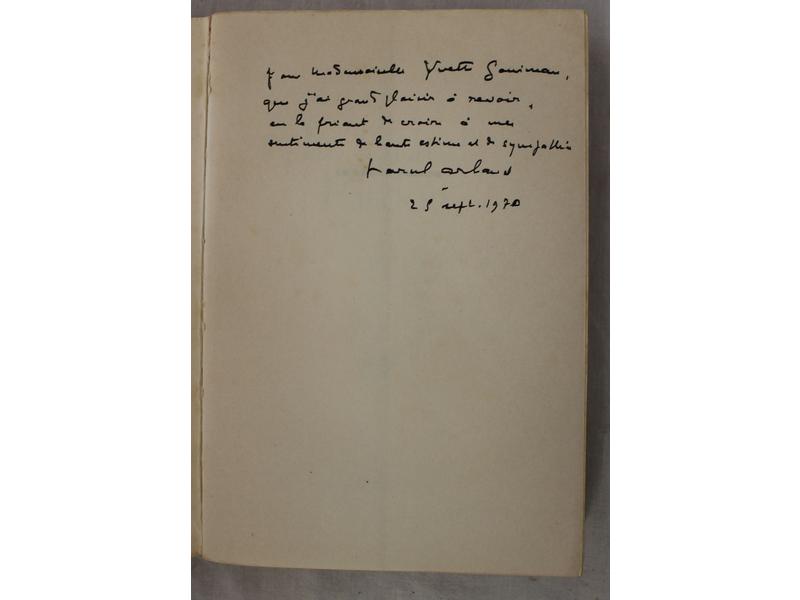 pour Mademoiselle Yvette
que j'ai grand plaisir à revoir,
en la priant de croire à mes
sentiments de haute estime et de sympathie
Marcel Arland
25 sept. 1970